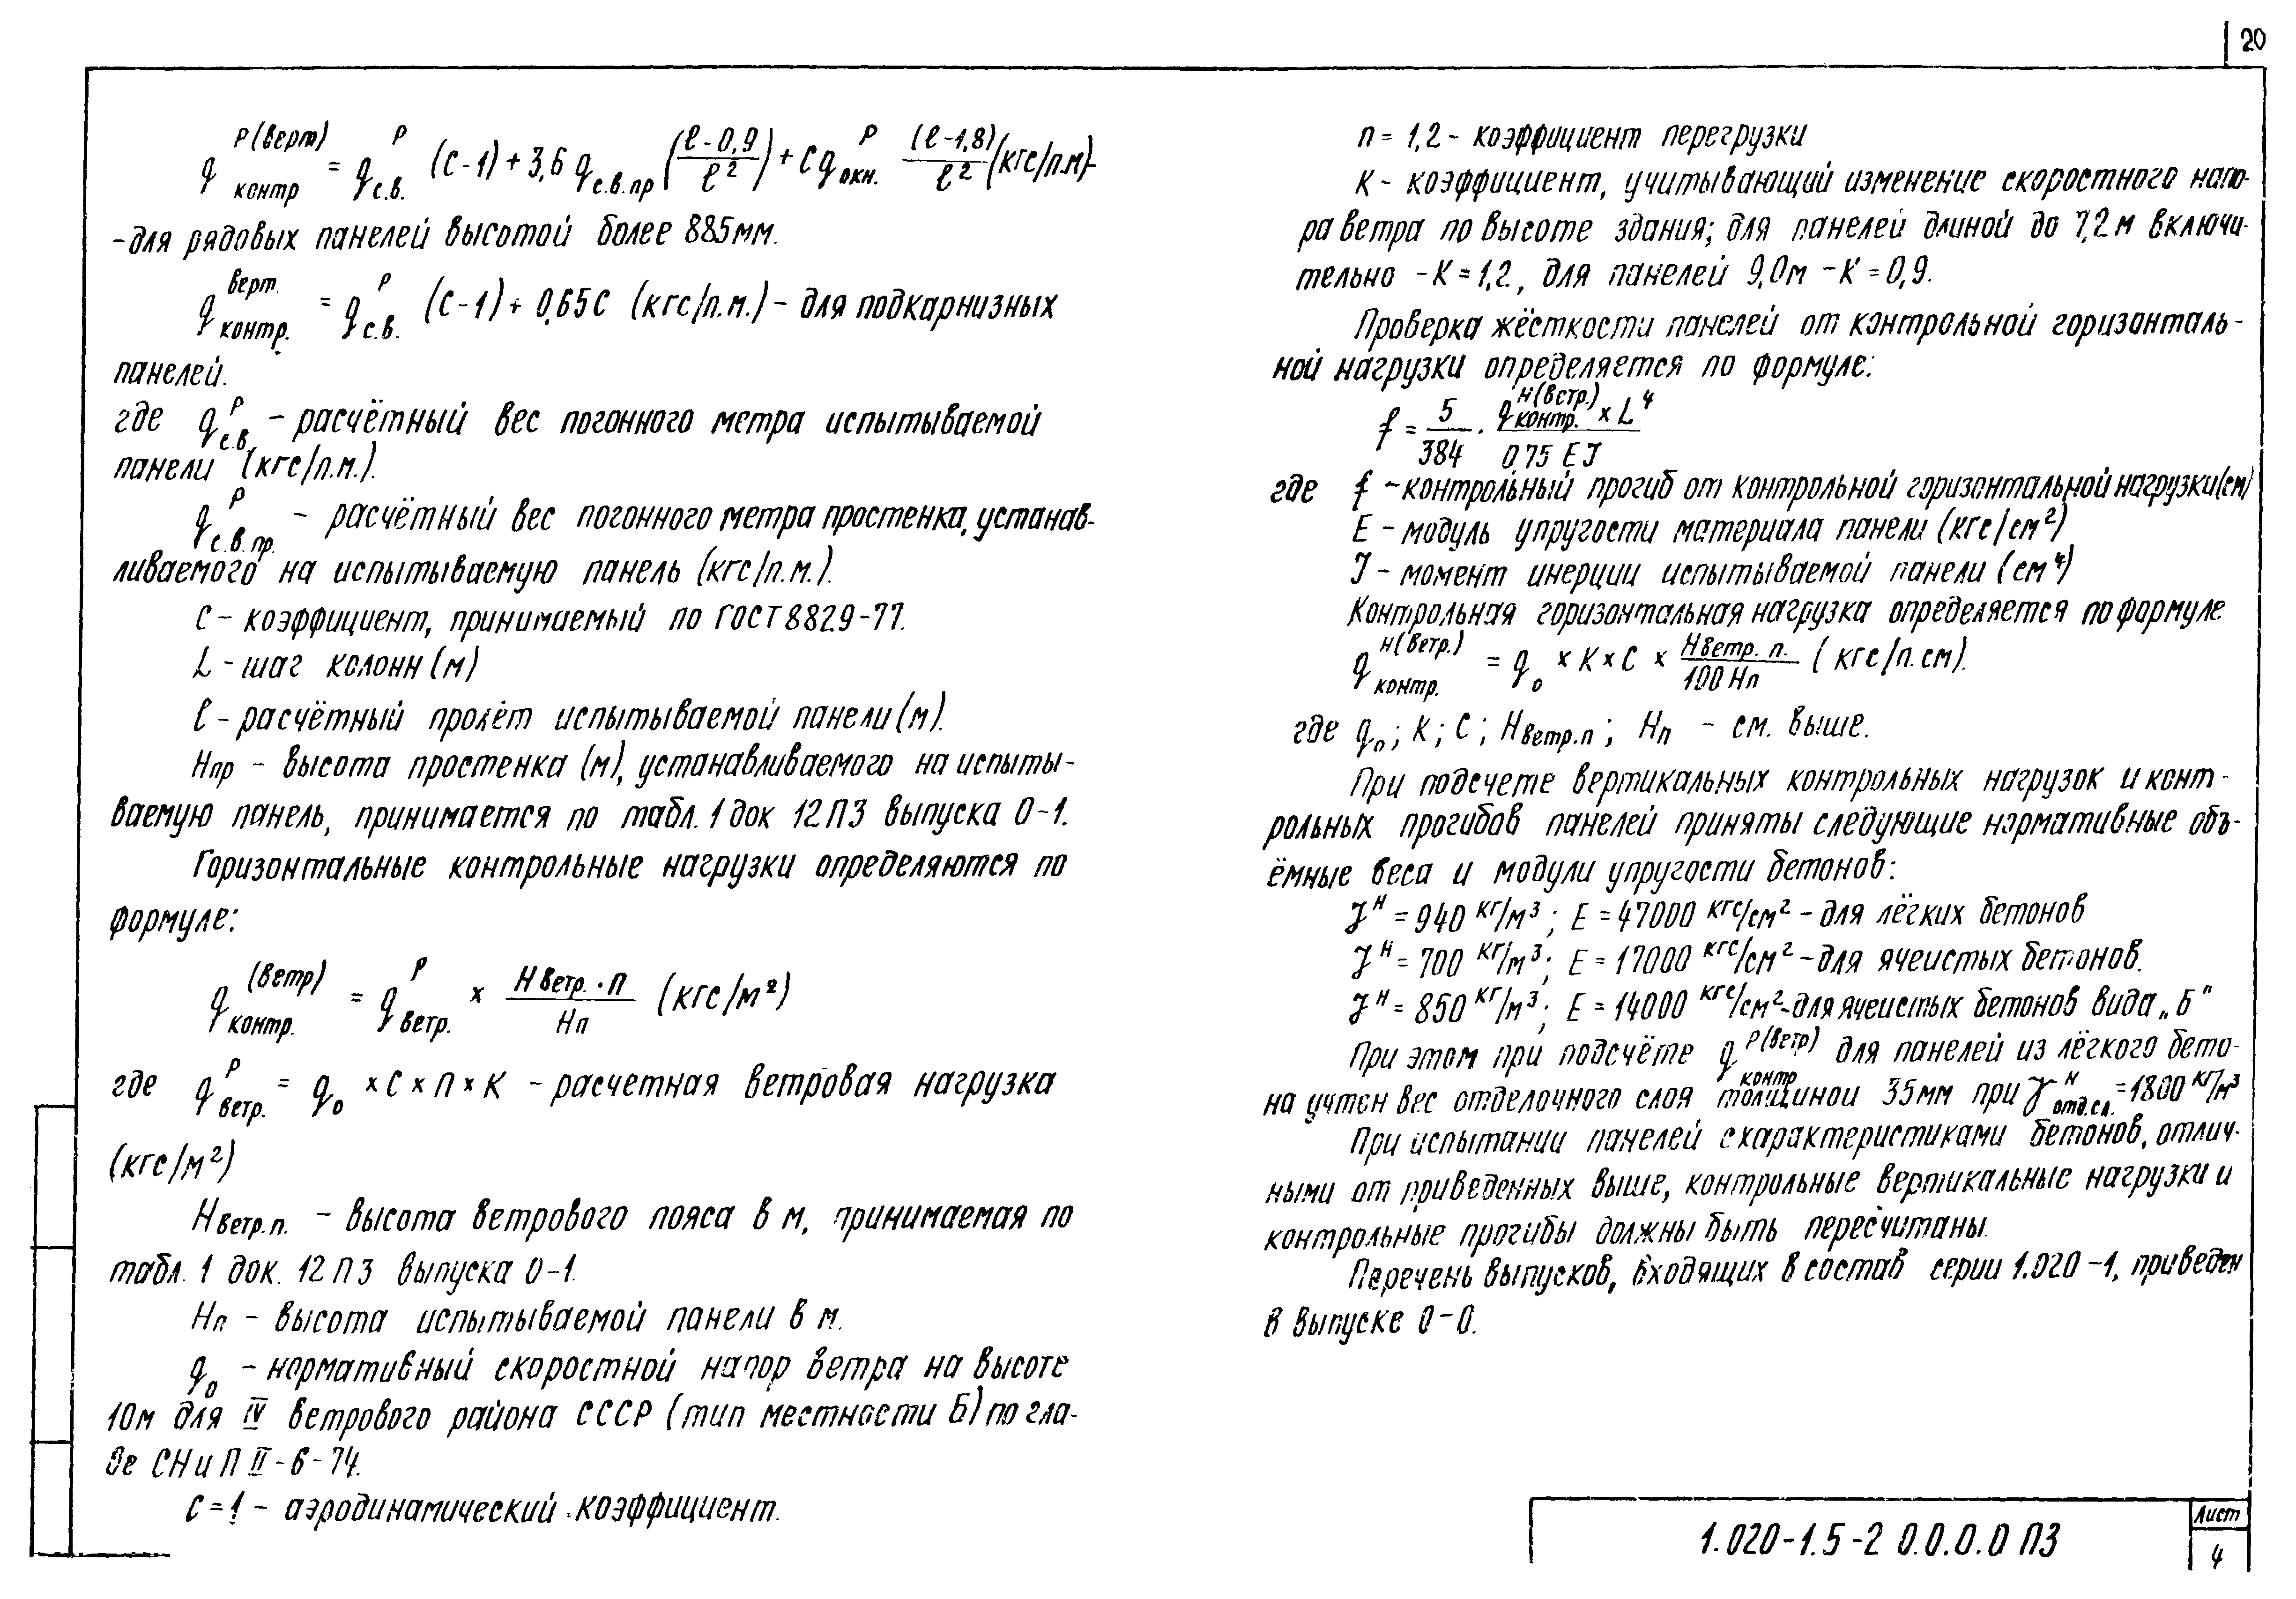 20
q контр^P(верт) = q с.в.^P (С-1) + 3,6 q с.в.пр ((ℓ-0,9)/ℓ²) + С q окн.^P (ℓ-1,8)/ℓ² (кгс/п.м)-
-для рядовых панелей высотой более 885мм.
q контр.^верт. = q с.в.^P (С-1) + 0,65С (кгс/п.м.) - для подкарнизных
панелей.
где q с.в.^P - расчётный вес погонного метра испытываемой
панели (кгс/п.м.).
q с.в.пр.^P - расчётный вес погонного метра простенка, устанав-
ливаемого на испытываемую панель (кгс/п.м.).
С - коэффициент, принимаемый по ГОСТ 8829-77.
L - шаг колонн (м)
ℓ - расчётный пролёт испытываемой панели (м).
Нпр - высота простенка (м), устанавливаемого на испыты-
ваемую панель, принимается по табл. 1 док 12ПЗ выпуска 0-1.
Горизонтальные контрольные нагрузки определяются по
формуле:
q контр.^(ветр) = q ветр.^P × (Н ветр. · п)/Нп (кгс/м²)
где q ветр.^P = q₀ × С × п × К - расчетная ветровая нагрузка
(кгс/м²)
Нветр.п. - высота ветрового пояса в м, принимаемая по
табл. 1 док. 12ПЗ выпуска 0-1.
Нп - высота испытываемой панели в м.
q₀ - нормативный скоростной напор ветра на высоте
10м для IV ветрового района СССР (тип местности Б) по гла-
ве СНиП II-6-74.
С=1 - аэродинамический коэффициент.
п = 1,2 - коэффициент перегрузки
К - коэффициент, учитывающий изменение скоростного напо-
ра ветра по высоте здания; для панелей длиной до 7,2м включи-
тельно - К=1,2, для панелей 9,0м - К=0,9.
Проверка жёсткости панелей от контрольной горизонталь-
ной нагрузки определяется по формуле:
f = 5/384 · (q контр.^Н(ветр.) × L⁴)/(0,75 EJ)
где f - контрольный прогиб от контрольной горизонтальной нагрузки (см)
E - модуль упругости материала панели (кгс/см²)
J - момент инерции испытываемой панели (см⁴)
Контрольная горизонтальная нагрузка определяется по формуле
q контр.^Н(ветр.) = q₀ × К × С × (Нветр. п.)/(100 Нп) (кгс/п.см).
где q₀; К; С; Нветр.п; Нп - см. выше.
При подсчете вертикальных контрольных нагрузок и конт-
рольных прогибов панелей приняты следующие нормативные объ-
ёмные веса и модули упругости бетонов:
γᴴ = 940 кг/м³; E = 47000 кгс/см² - для лёгких бетонов
γᴴ = 700 кг/м³; E = 17000 кгс/см² - для ячеистых бетонов.
γᴴ = 850 кг/м³; E = 14000 кгс/см² - для ячеистых бетонов вида „Б"
При этом при подсчёте q контр^P(ветр) для панелей из лёгкого бето-
на учтен вес отделочного слоя толщиной 35мм при γ отд.сл.^Н = 1800 кг/м³
При испытании панелей с характеристиками бетонов, отлич-
ными от приведенных выше, контрольные вертикальные нагрузки и
контрольные прогибы должны быть пересчитаны.
Перечень выпусков, входящих в состав серии 1.020-1, приведен
в выпуске 0-0.
1.020-1.5-2 0.0.0.0 ПЗ
Лист
4